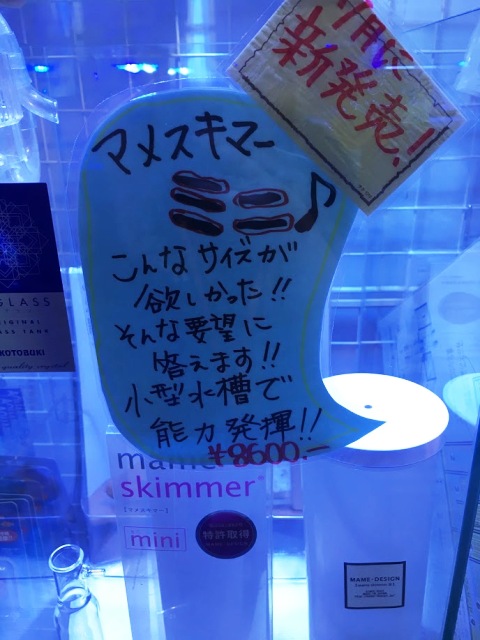 7月に
新発売!
マメスキマー
ミニ♪
こんなサイズが
欲しかった!!
そんな要望に
答えます!!
小型水槽で
能力発揮!!
¥8600.-
mame
skimmer
[マメスキマー]
mini
特許取得
GLASS
KOTOBUKI
MAME-DESIGN